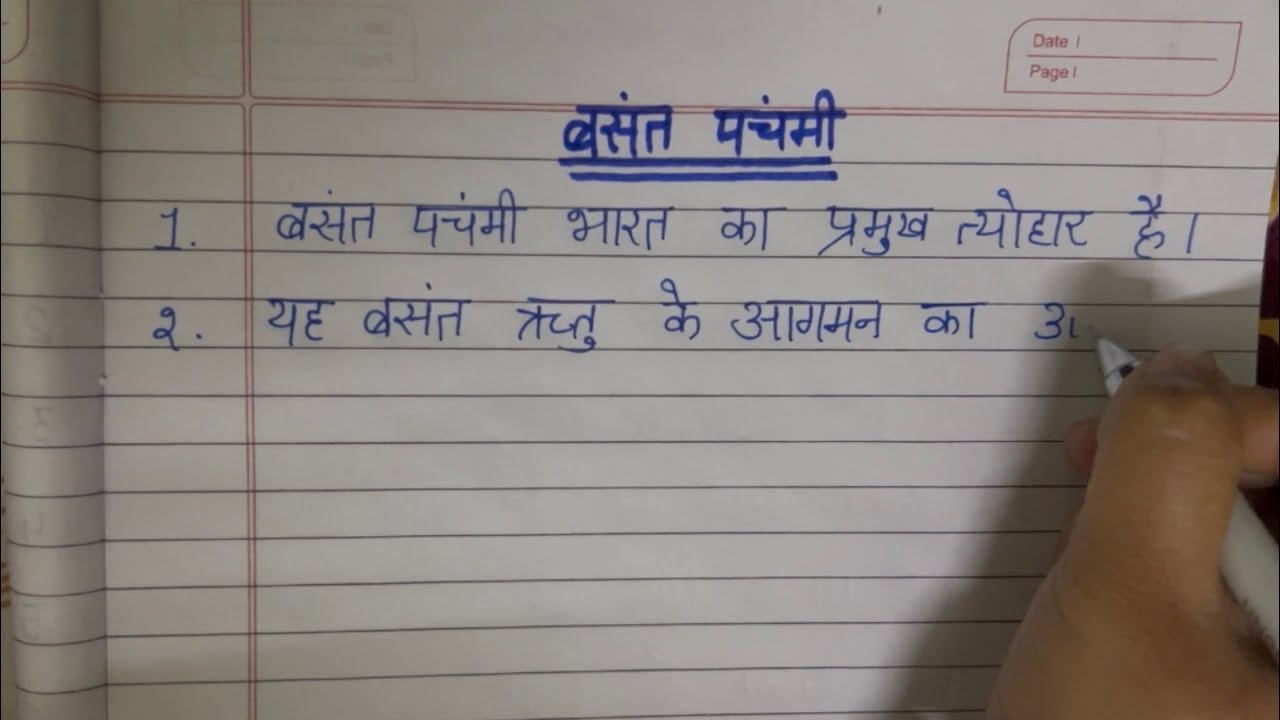 Date |
Page |
बसंत पचंमी
1. बसंत पचंमी भारत का प्रमुख त्योहार है।
२. यह बसंत ऋतु के आगमन का